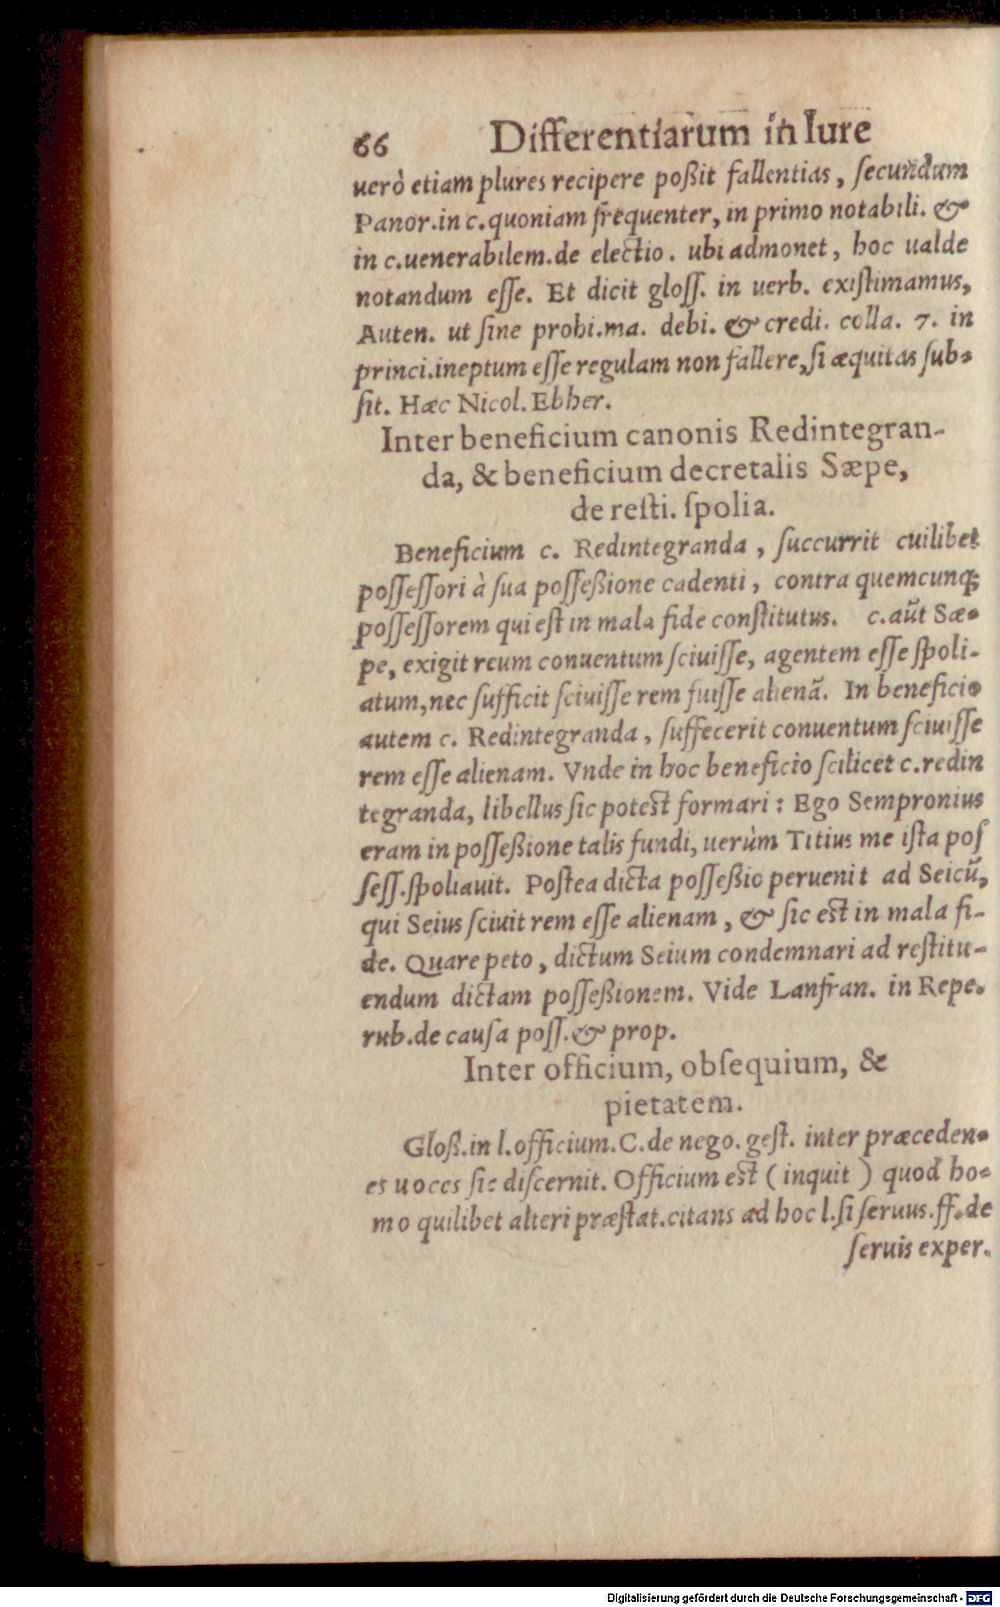 66 Differentiarum in Iure
uerò etiam plures recipere poßit fallentias, ſecundum
Panor.in c.quoniam frequenter, in primo notabili. &
in c.uenerabilem.de electio. ubi admonet, hoc ualde
notandum eſſe. Et dicit gloſſ. in uerb. exiſtimamus,
Auten. ut ſine prohi.ma. debi. & credi. colla. 7. in
princi.ineptum eſſe regulam non fallere,ſi æquitas ſub-
ſit. Hæc Nicol. Ebher.
Inter beneficium canonis Redintegran-
da, & beneficium decretalis Sæpe,
de reſti. ſpolia.
Beneficium c. Redintegranda, ſuccurrit cuilibet
poſſeſſori à ſua poſſeßione cadenti, contra quemcunq;
poſſeſſorem qui eſt in mala fide conſtitutus. c.aūt Sæ-
pe, exigit reum conuentum ſciuiſſe, agentem eſſe ſpoli-
atum,nec ſufficit ſciuiſſe rem fuiſſe alienā. In beneficio
autem c. Redintegranda, ſuffecerit conuentum ſciuiſſe
rem eſſe alienam. Vnde in hoc beneficio ſcilicet c.redin
tegranda, libellus ſic poteſt formari: Ego Sempronius
eram in poſſeßione talis fundi, uerùm Titius me iſta poſ
ſeſſ.ſpoliauit. Poſtea dicta poſſeßio peruenit ad Seicū,
qui Seius ſciuit rem eſſe alienam, & ſic eſt in mala fi-
de. Quare peto, dictum Seium condemnari ad reſtitu-
endum dictam poſſeßionem. Vide Lanfran. in Repe.
rub.de cauſa poſſ.& prop.
Inter officium, obſequium, &
pietatem.
Gloß.in l.officium.C.de nego. geſt. inter præceden-
es uoces ſic diſcernit. Officium eſt (inquit) quod ho-
mo quilibet alteri præſtat.citans ad hoc l.ſi ſeruus.ff.de
ſeruis exper.
Digitalisierung gefördert durch die Deutsche Forschungsgemeinschaft - DFG